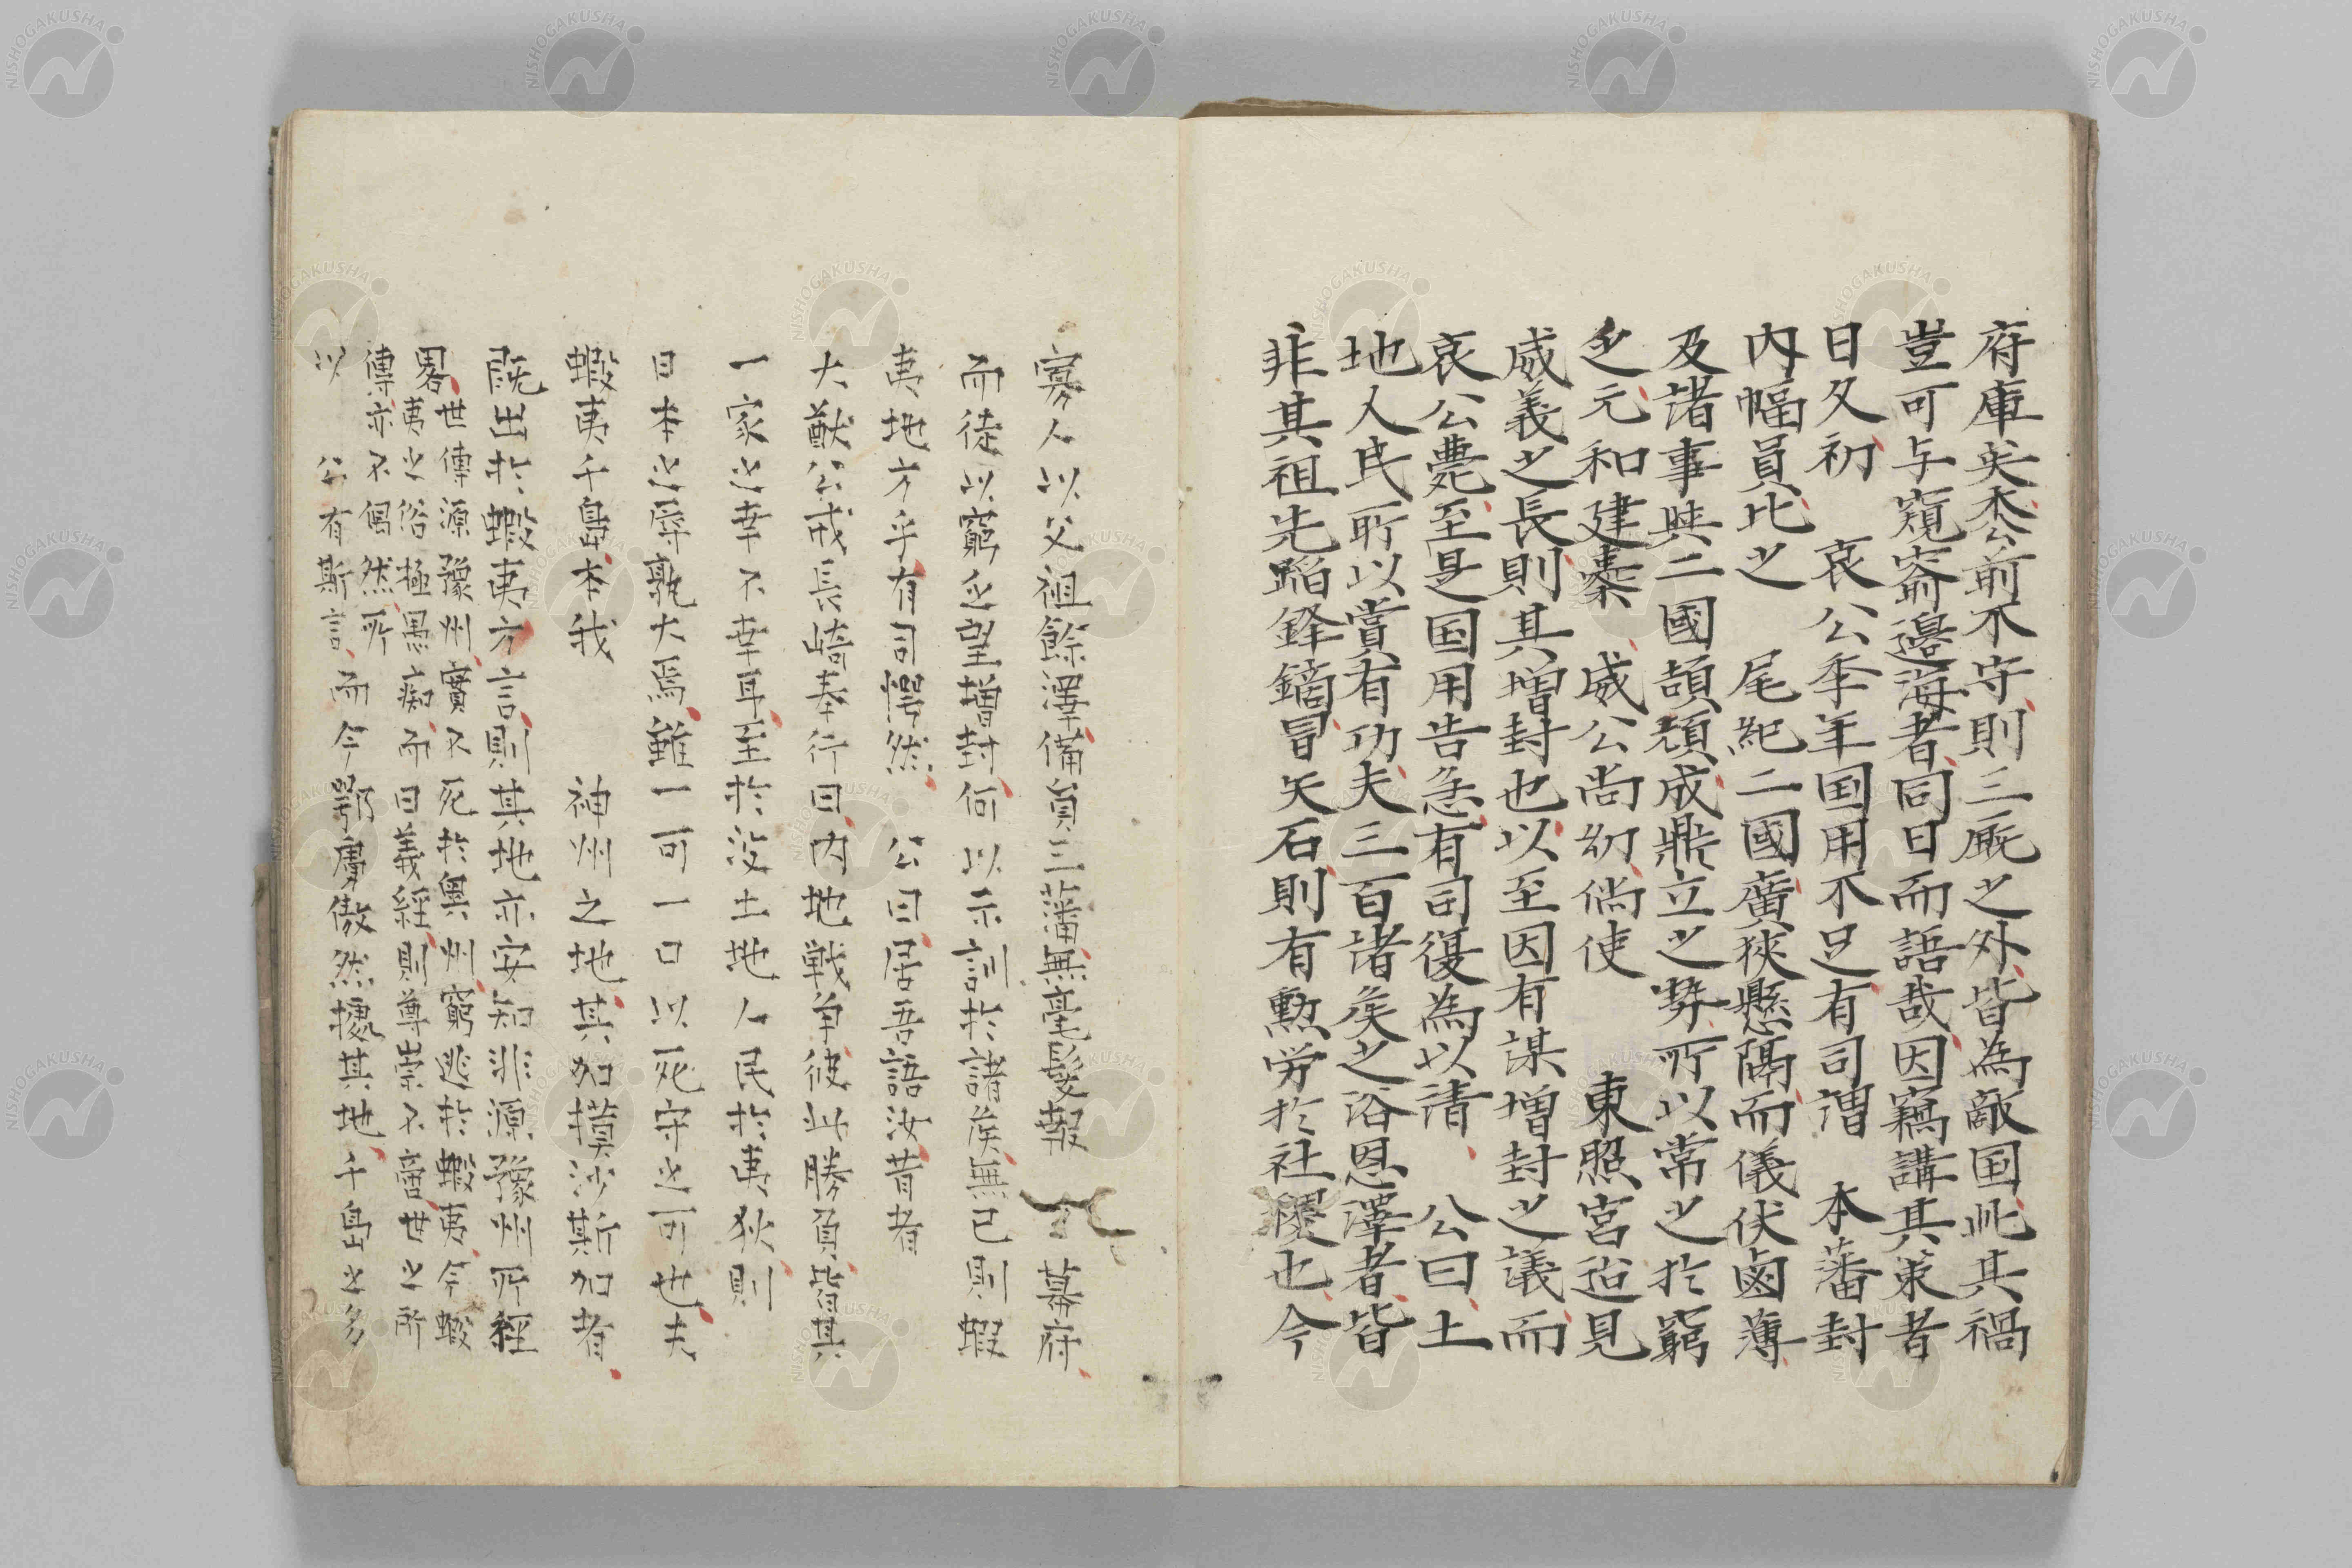 府庫矣本公前不守則三厩之外皆為敵国此其禍
豈可与窺窬邊海者同日而語哉因竊講其策者
日久初　哀公季年国用不足有司謂　本藩封
内幅員比之　尾紀二國廣狹懸隔而儀仗鹵薄
及諸事與二國頡頏成鼎立之勢所以常之於窮
乏元和建櫜　威公尚幼倘使　東照宮迨見
威義之長則其增封也以至因有謀增封之議而
哀公薨至是国用告急有司復為以清　公曰土
地人民所以賞有功夫三百諸矦之浴恩澤者皆
非其祖先蹈鋒鏑冒矢石則有勲労於社稷也今
寡人以父祖餘澤備員三藩無毫髮報　幕府
而徒以窮乏望增封何以示訓於諸矦無已則蝦
夷地方乎有司愕然　公曰居吾語汝昔者
大猷公戒長崎奉行曰内地戰争彼此勝負皆其
一家之幸不幸耳至於没土地人民於夷狄則
日本之辱孰大焉雖一可一口以死守之可也夫
蝦夷千島本我　神州之地其如摸沙斯加者
既出於蝦夷方言則其地亦安知非源豫州所経
畧世傳源豫州實不死於奥州窮逃於蝦夷今蝦
夷之俗極愚痴而曰義經則尊崇不啻世之所
傳亦不偶然所
以　公有斯言而今鄂虜傲然擾其地千島之多